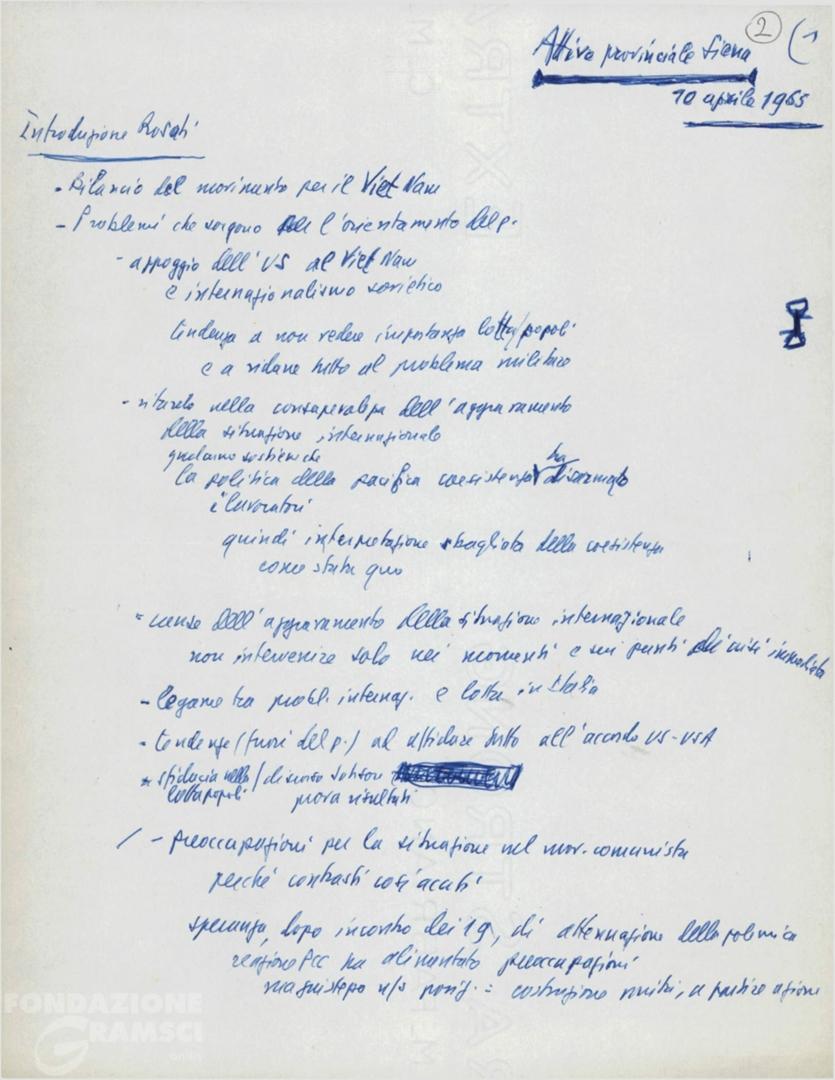 2 (1
Attivo provinciale Siena
10 aprile 1965
Introduzione Rosati
- Bilancio del movimento per il Viet Nam
- Problemi che sorgono per l'orientamento del p.
- appoggio dell'US al Viet Nam
e internazionalismo sovietico
tendenza a non vedere importanza lotta popoli
e a ridurre tutto al problema militare
- ritardo nella consapevolezza dell'aggravamento
della situazione internazionale
qualcuno sostiene che
la politica della pacifica coesistenza ha disarmato
i lavoratori
quindi interpretazione sbagliata della coesistenza
come statu quo
- cause dell'aggravamento della situazione internazionale
non intervenire solo nei momenti e sui punti di crisi immediata
- legame tra probl. internaz. e lotta in Italia
- tendenze (fuori del p.) ad affidare tutto all'accordo US-USA
- sfiducia nella / discorso Johnson
lotta popoli prova risultati
/ - preoccupazioni per la situazione nel mov. comunista
perché contrasti così acuti
speranza, dopo incontro dei 19, di attenuazione della polemica
reazione PCC ha alimentato preoccupazioni
posiz. = costruzione unità, a partire azione
FONDAZIONE
GRAMSCI
onlus